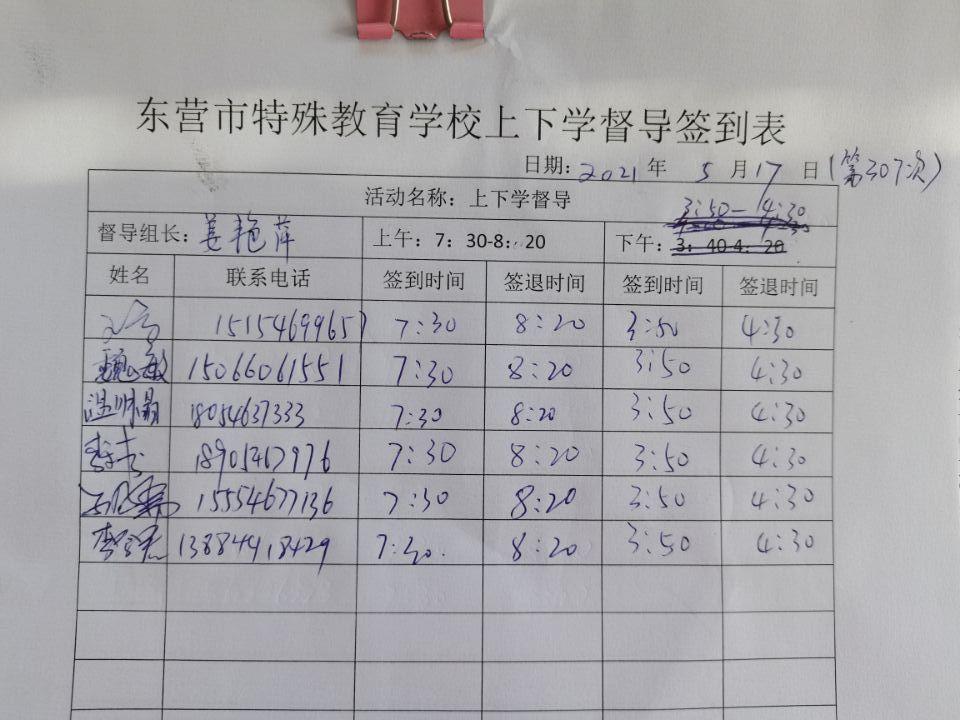 东营市特殊教育学校上下学督导签到表
日期: 2021 年 5 月 17 日 (第307次)
活动名称: 上下学督导
3:50-4:30
督导组长: 姜艳萍 上午: 7: 30-8: 20 下午: 3: 40-4: 20
姓名 联系电话 签到时间 签退时间 签到时间 签退时间
15154699657 7:30 8:20 3:50 4:30
魏敏 15066061551 7:30 8:20 3:50 4:30
温晶 18054637333 7:30 8:20 3:50 4:30
李 18905467976 7:30 8:20 3:50 4:30
15554677136 7:30 8:20 3:50 4:30
李 13884918429 7:30. 8:20 3:50 4:30